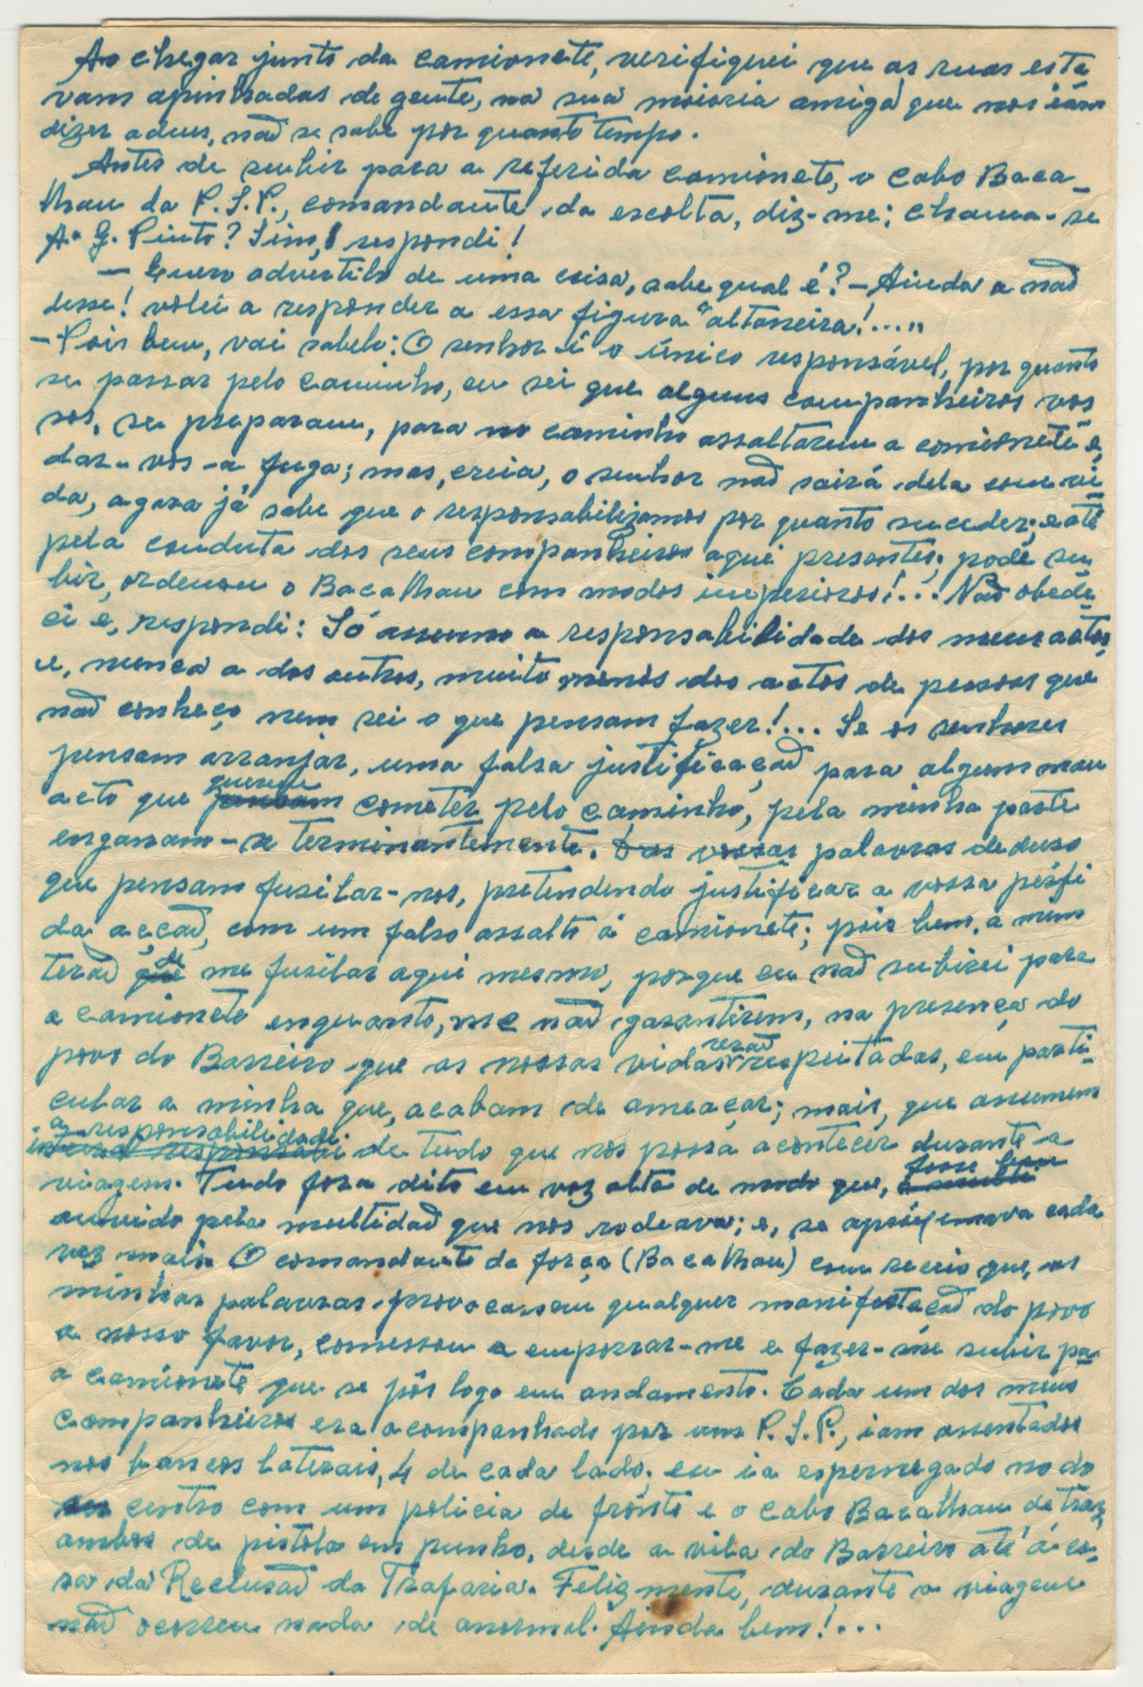 Ao chegar junto da camionete, verifiquei que as ruas esta
vam apinhadas de gente, na sua maioria amiga que nos iam
dizer adeus, não se sabe por quanto tempo.
Antes de subir para a referida camionete, o cabo Baca-
lhau da P.S.P., comandante da escolta, diz-me: chama-se
A. G. Pinto? Sim, respondi!
— Quero adverti-lo de uma coisa, sabe qual é? — Ainda a não
disse! voltei a responder a essa figura "altaneira!....."
— Pois bem, vai sabelo: O senhor é o único responsável, por quanto
se passar pelo caminho, eu sei que alguns companheiros vos
sos, se preparam, para no caminho assaltarem a camionete e,
dar-vos-a fuga; mas, creia, o senhor não sairá dela com vi
da, agora já sabe que o responsabilizamos por quanto suceder; e até
pela conduta dos seus companheiros aqui presentes; pode su
bir, ordenou o Bacalhau com modos imperiosos!... Não obede
ci e, respondi: Só assumo a responsabilidade dos meus actos,
e, nunca a dos outros, muito menos dos actos de pessoas que
não conheço nem sei o que pensam fazer!... Se os senhores
pensam arranjar, uma falsa justificação para algum mau
querem
acto que pensam cometer pelo caminho, pela minha parte
enganam-se terminantemente. Das vossas palavras deduso
que pensam fusilar-nos, pretendendo justificar a vossa pérfi
da acção, com um falso assalto á camionete; pois bem, a mim
de
terão que me fusilar aqui mesmo, porque eu não subirei para
a camionete enquanto, me não garantirem, na presença do
serão
povo do Barreiro que as nossas vidas respeitadas, em parti-
cular a minha que, acabam de ameaçar; mais, que assumem
a responsabilidade
de tudo que nos possa acontecer durante a
fosse bem
viagem. Tudo fora dito em voz alta de modo que,
ouvido pela multidão que nos rodeava; e, se aproximava cada
vez mais. O comandante da força (Bacalhau) com receio que, as
minhas palavras provocassem qualquer manifestação do povo
a nosso favor, comessou a emporrar-me e fazer-me subir pa-
a camionete que se pôs logo em andamento. Cada um dos meus
companheiros era acompanhado por um P.S.P., iam assentados
nos bancos laterais, 4 de cada lado; eu ia espernegado no do
centro com um policia de frente e o cabo Bacalhau de traz,
ambos de pistola em punho, desde a vila do Barreiro até á ca-
sa da Reclusão da Trafaria. Felizmente, durante a viagem
não ocorreu nada de anormal. Ainda bem!...